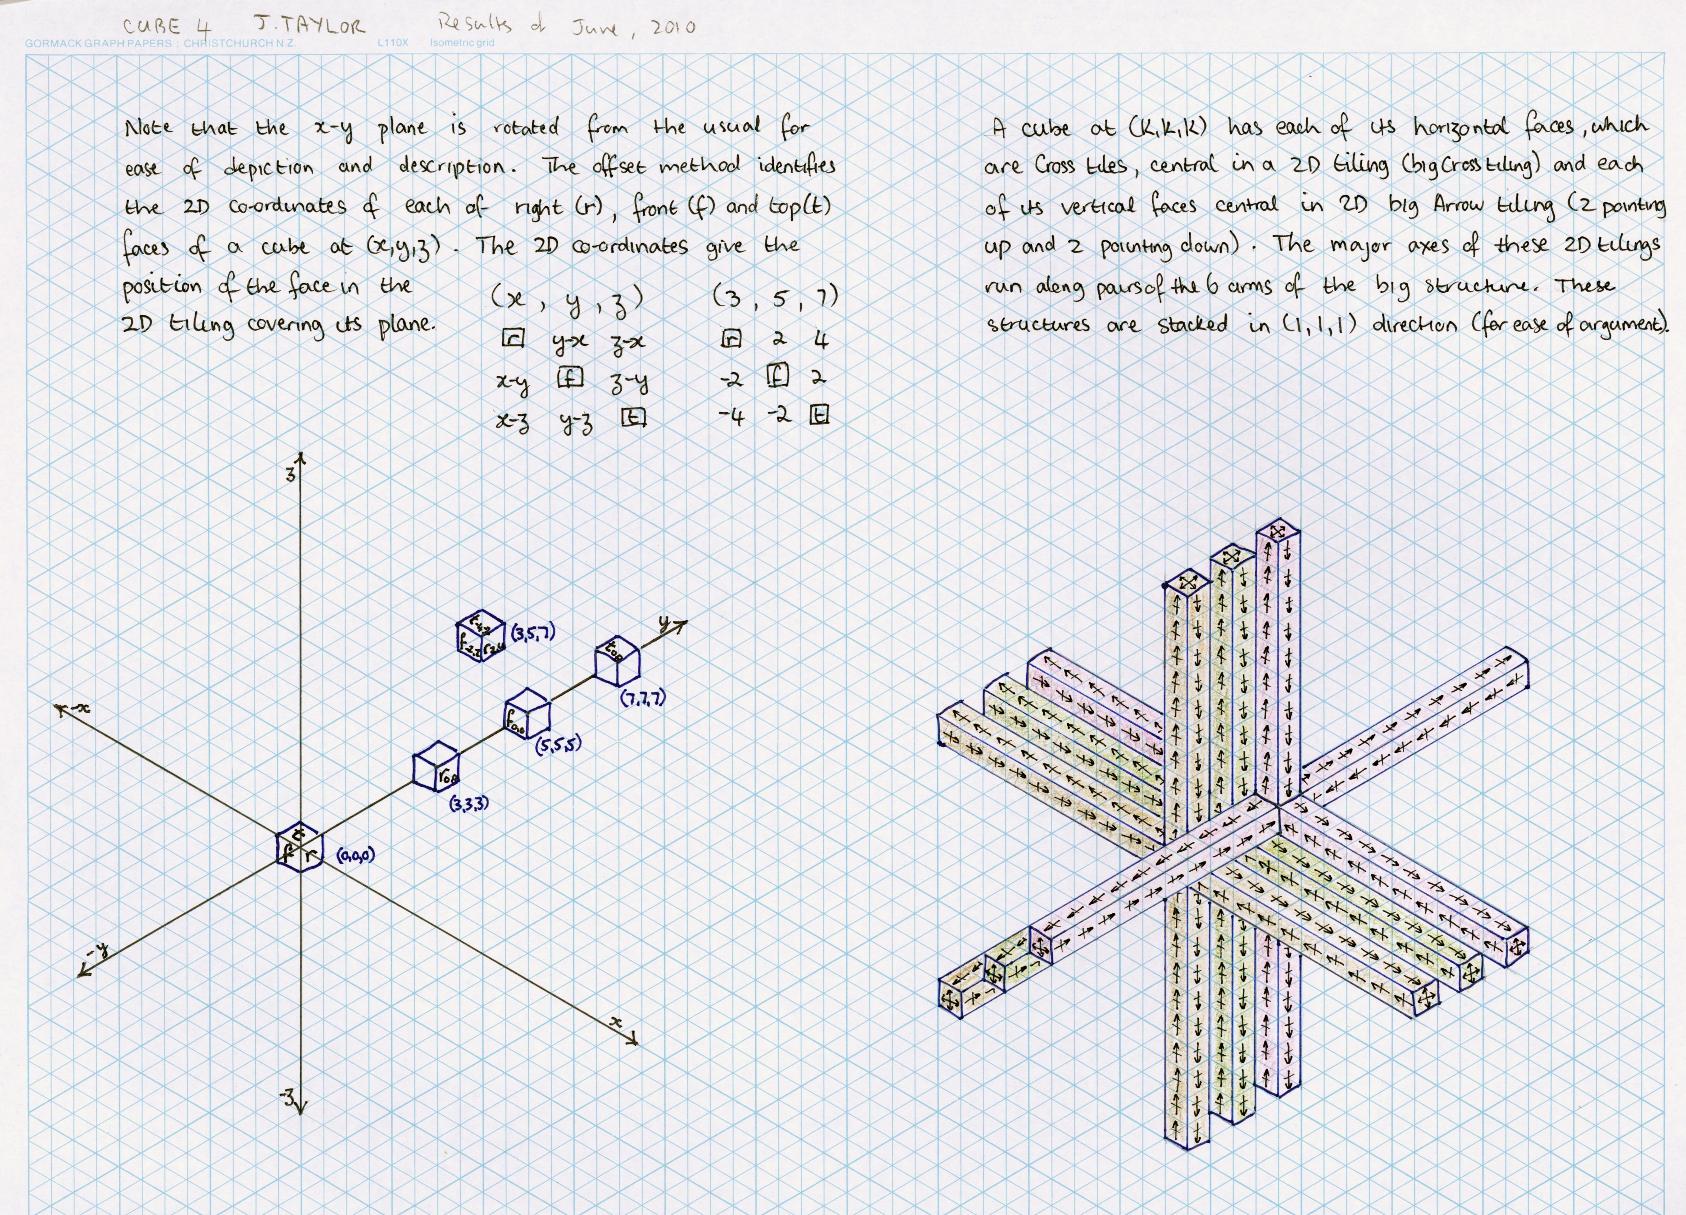 CUBE 4 J. TAYLOR Results of June, 2010
GORMACK GRAPH PAPERS : CHRISTCHURCH N.Z. L110X Isometric grid
Note that the x-y plane is rotated from the usual for
ease of depiction and description. The offset method identifies
the 2D co-ordinates of each of right (r), front (f) and top(t)
faces of a cube at (x,y,z). The 2D co-ordinates give the
position of the face in the
2D tiling covering its plane.
(x, y, z) (3, 5, 7)
r y-x z-x r 2 4
x-y f z-y -2 f 2
x-z y-z t -4 -2 t
A cube at (K,K,K) has each of its horizontal faces, which
are Cross tiles, central in a 2D tiling (big Cross tiling) and each
of its vertical faces central in 2D big Arrow tiling (2 pointing
up and 2 pointing down). The major axes of these 2D tilings
run along pairs of the 6 arms of the big structure. These
structures are stacked in (1,1,1) direction (for ease of argument).
z
y
(3,5,7)
t0,0
(7,7,7)
-x
f0,0
(5,5,5)
r0,0
(3,3,3)
t
f r
(0,0,0)
-y
x
-z